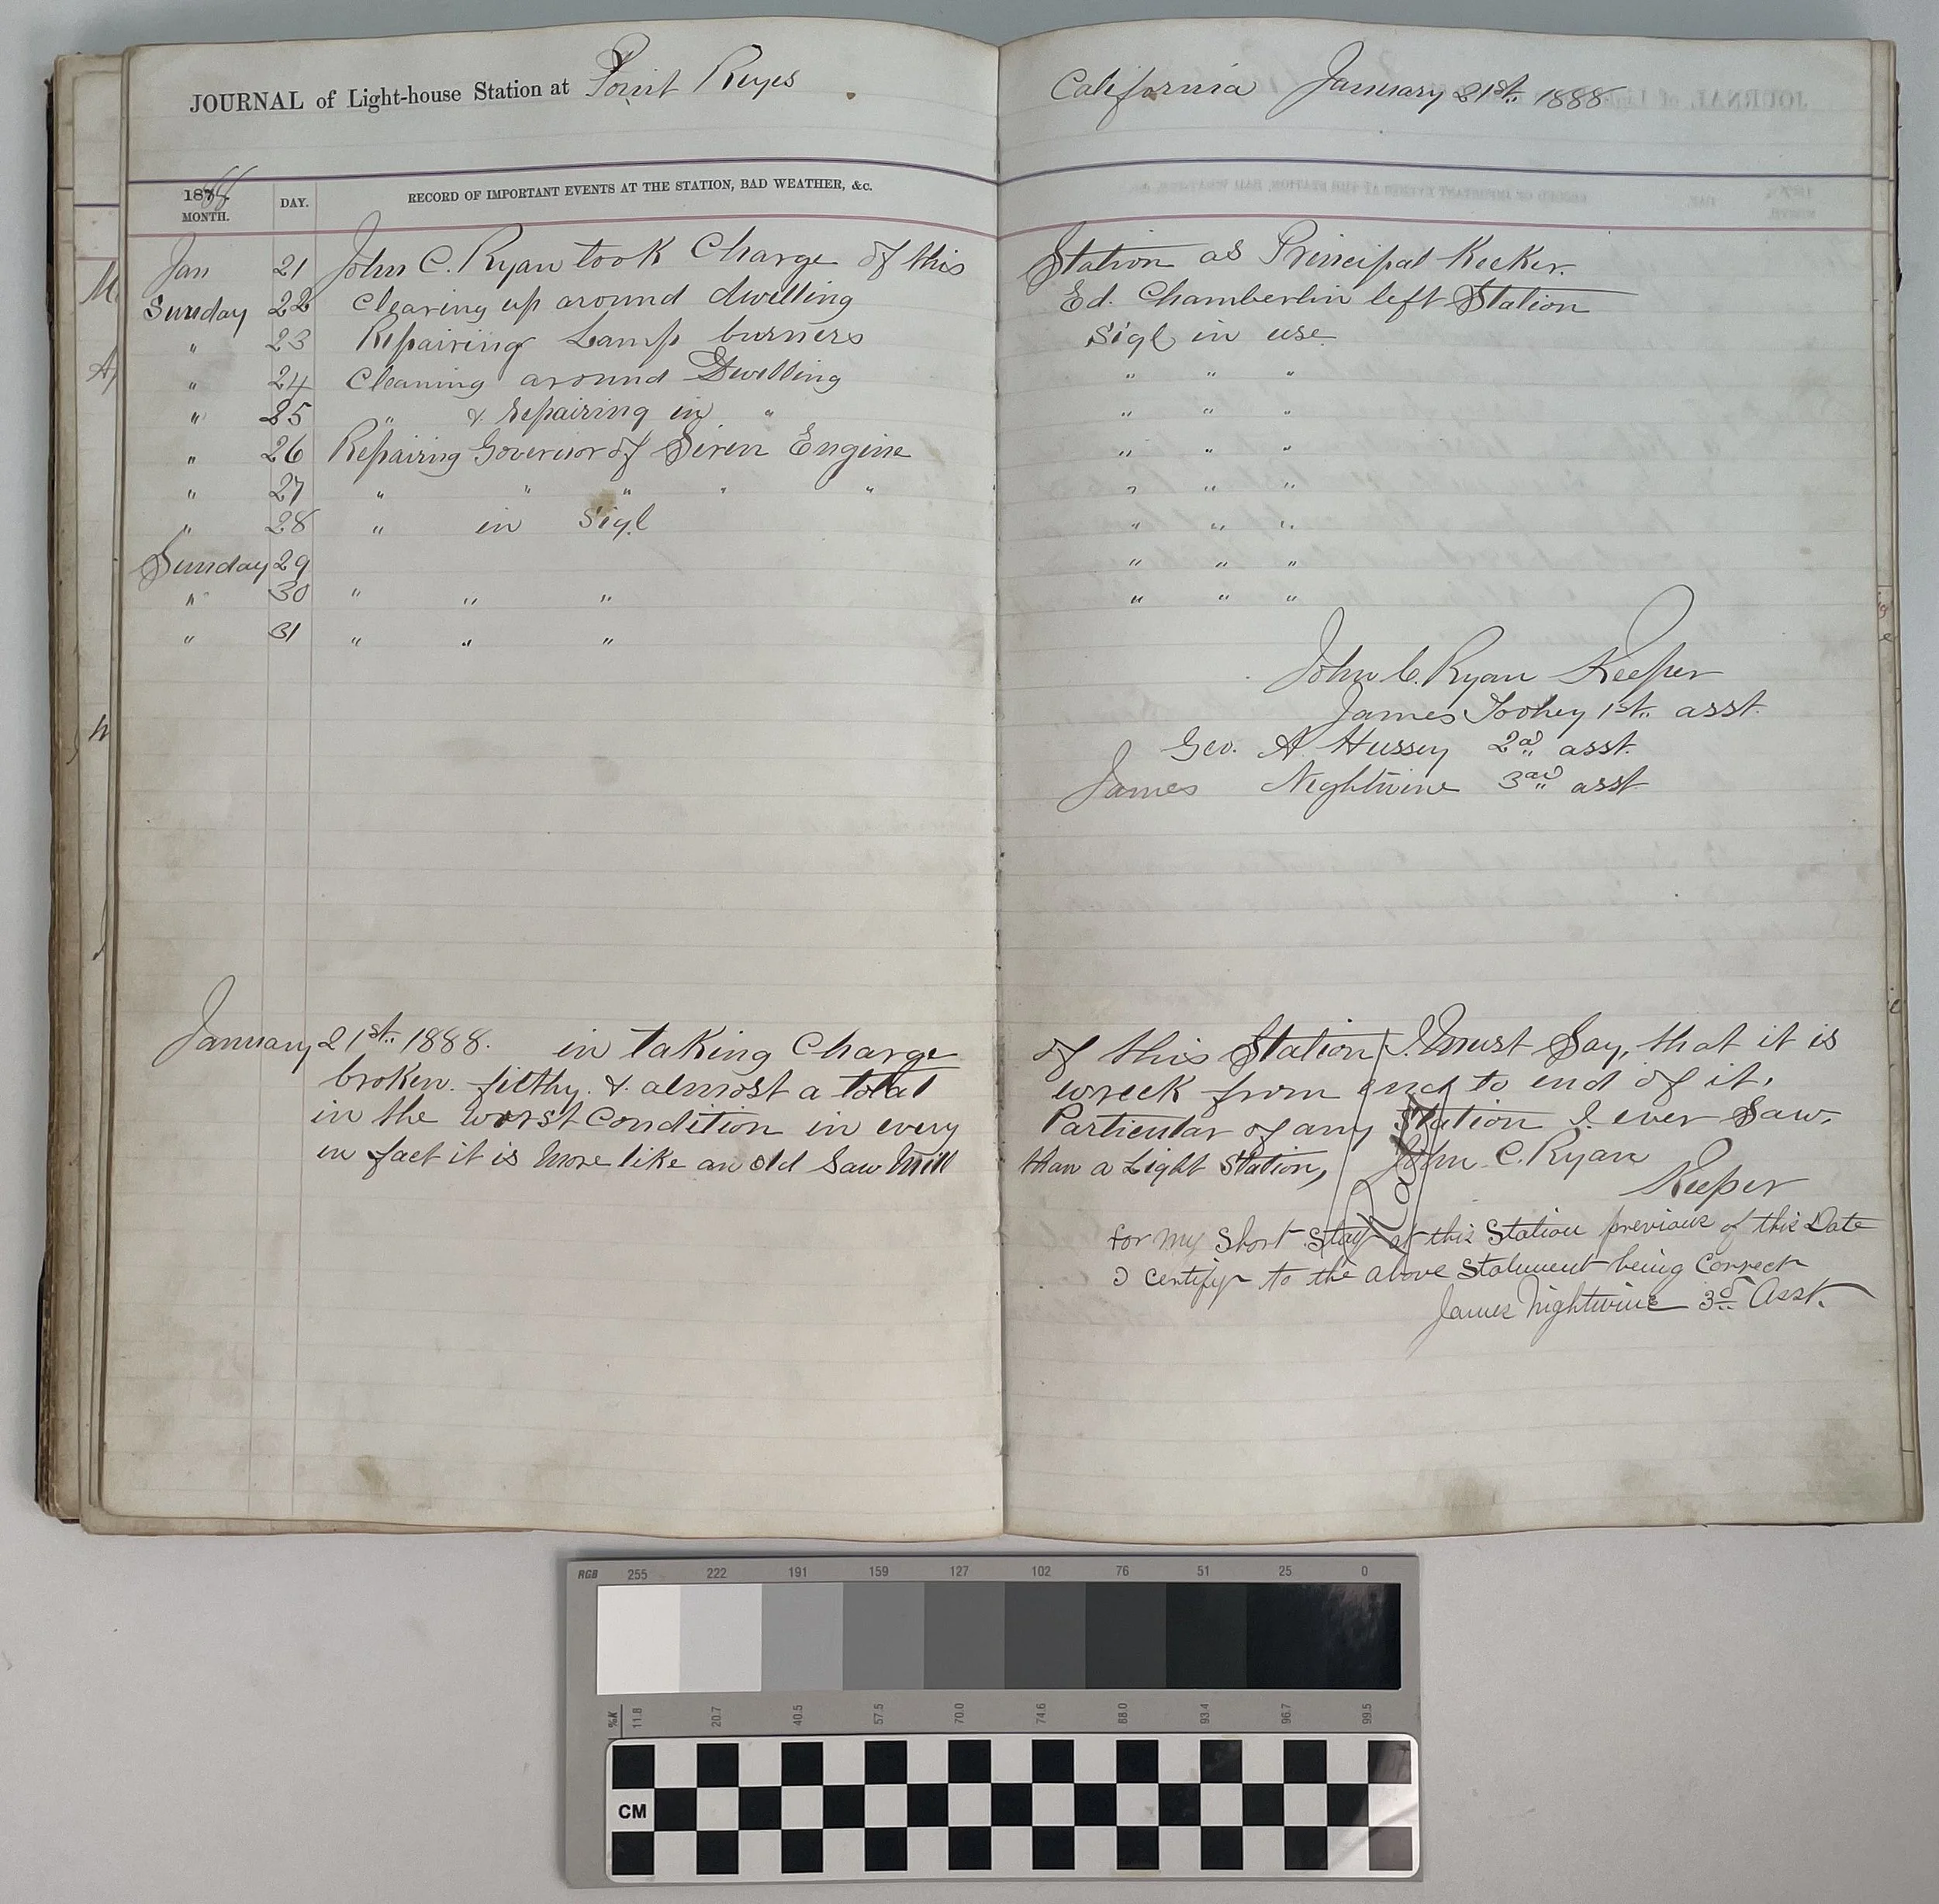 JOURNAL of Light-house Station at Point Reyes
California January 21st. 1888
1888
MONTH. DAY. RECORD OF IMPORTANT EVENTS AT THE STATION, BAD WEATHER, &c.
Jan 21 John C. Ryan took Charge of this Station as Principal Keeker.
Sunday 22 Clearing up around dwelling Ed. Chamberlin left Station
" 23 Repairing Lamp burners Sigl in use
" 24 Cleaning around Dwelling " " "
" 25 " & Repairing in " " " "
" 26 Repairing Governor of Siren Engine " " "
" 27 " " " " " " " "
" 28 " in Sigl " " "
Sunday 29 " " "
" 30 " " " " " "
" 31 " " "
John C. Ryan Keeper
James Toohey 1st. asst.
Geo. A Hussey 2ad asst.
James Nightwine 3ad asst
January 21st. 1888. in taking Charge of this Station I must Say, that it is
broken. filthy. & almost a total wreck from end to end of it.
in the worst Condition in every Particular of any Station I ever Saw.
in fact it is More like an old Saw Mill than a Light Station,
John C. Ryan
Keeper
for my short stay at this Station previous of this Date
I certify to the above Statement being Correct
James Nightwine 3d Asst.
RGB 255 222 191 159 127 102 76 51 25 0
%K 11.8 20.7 40.5 57.5 70.0 74.6 88.0 93.4 96.7 99.5
CM